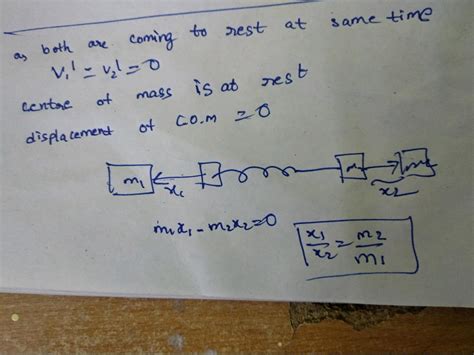 as both are coming to rest at same time
V₁' = V₂' = 0
centre of mass is at rest
displacement of C.O.M = 0
m₁ x₁ x₂
m₁x₁ - m₂x₂ = 0
x₁/x₂ = m₂/m₁